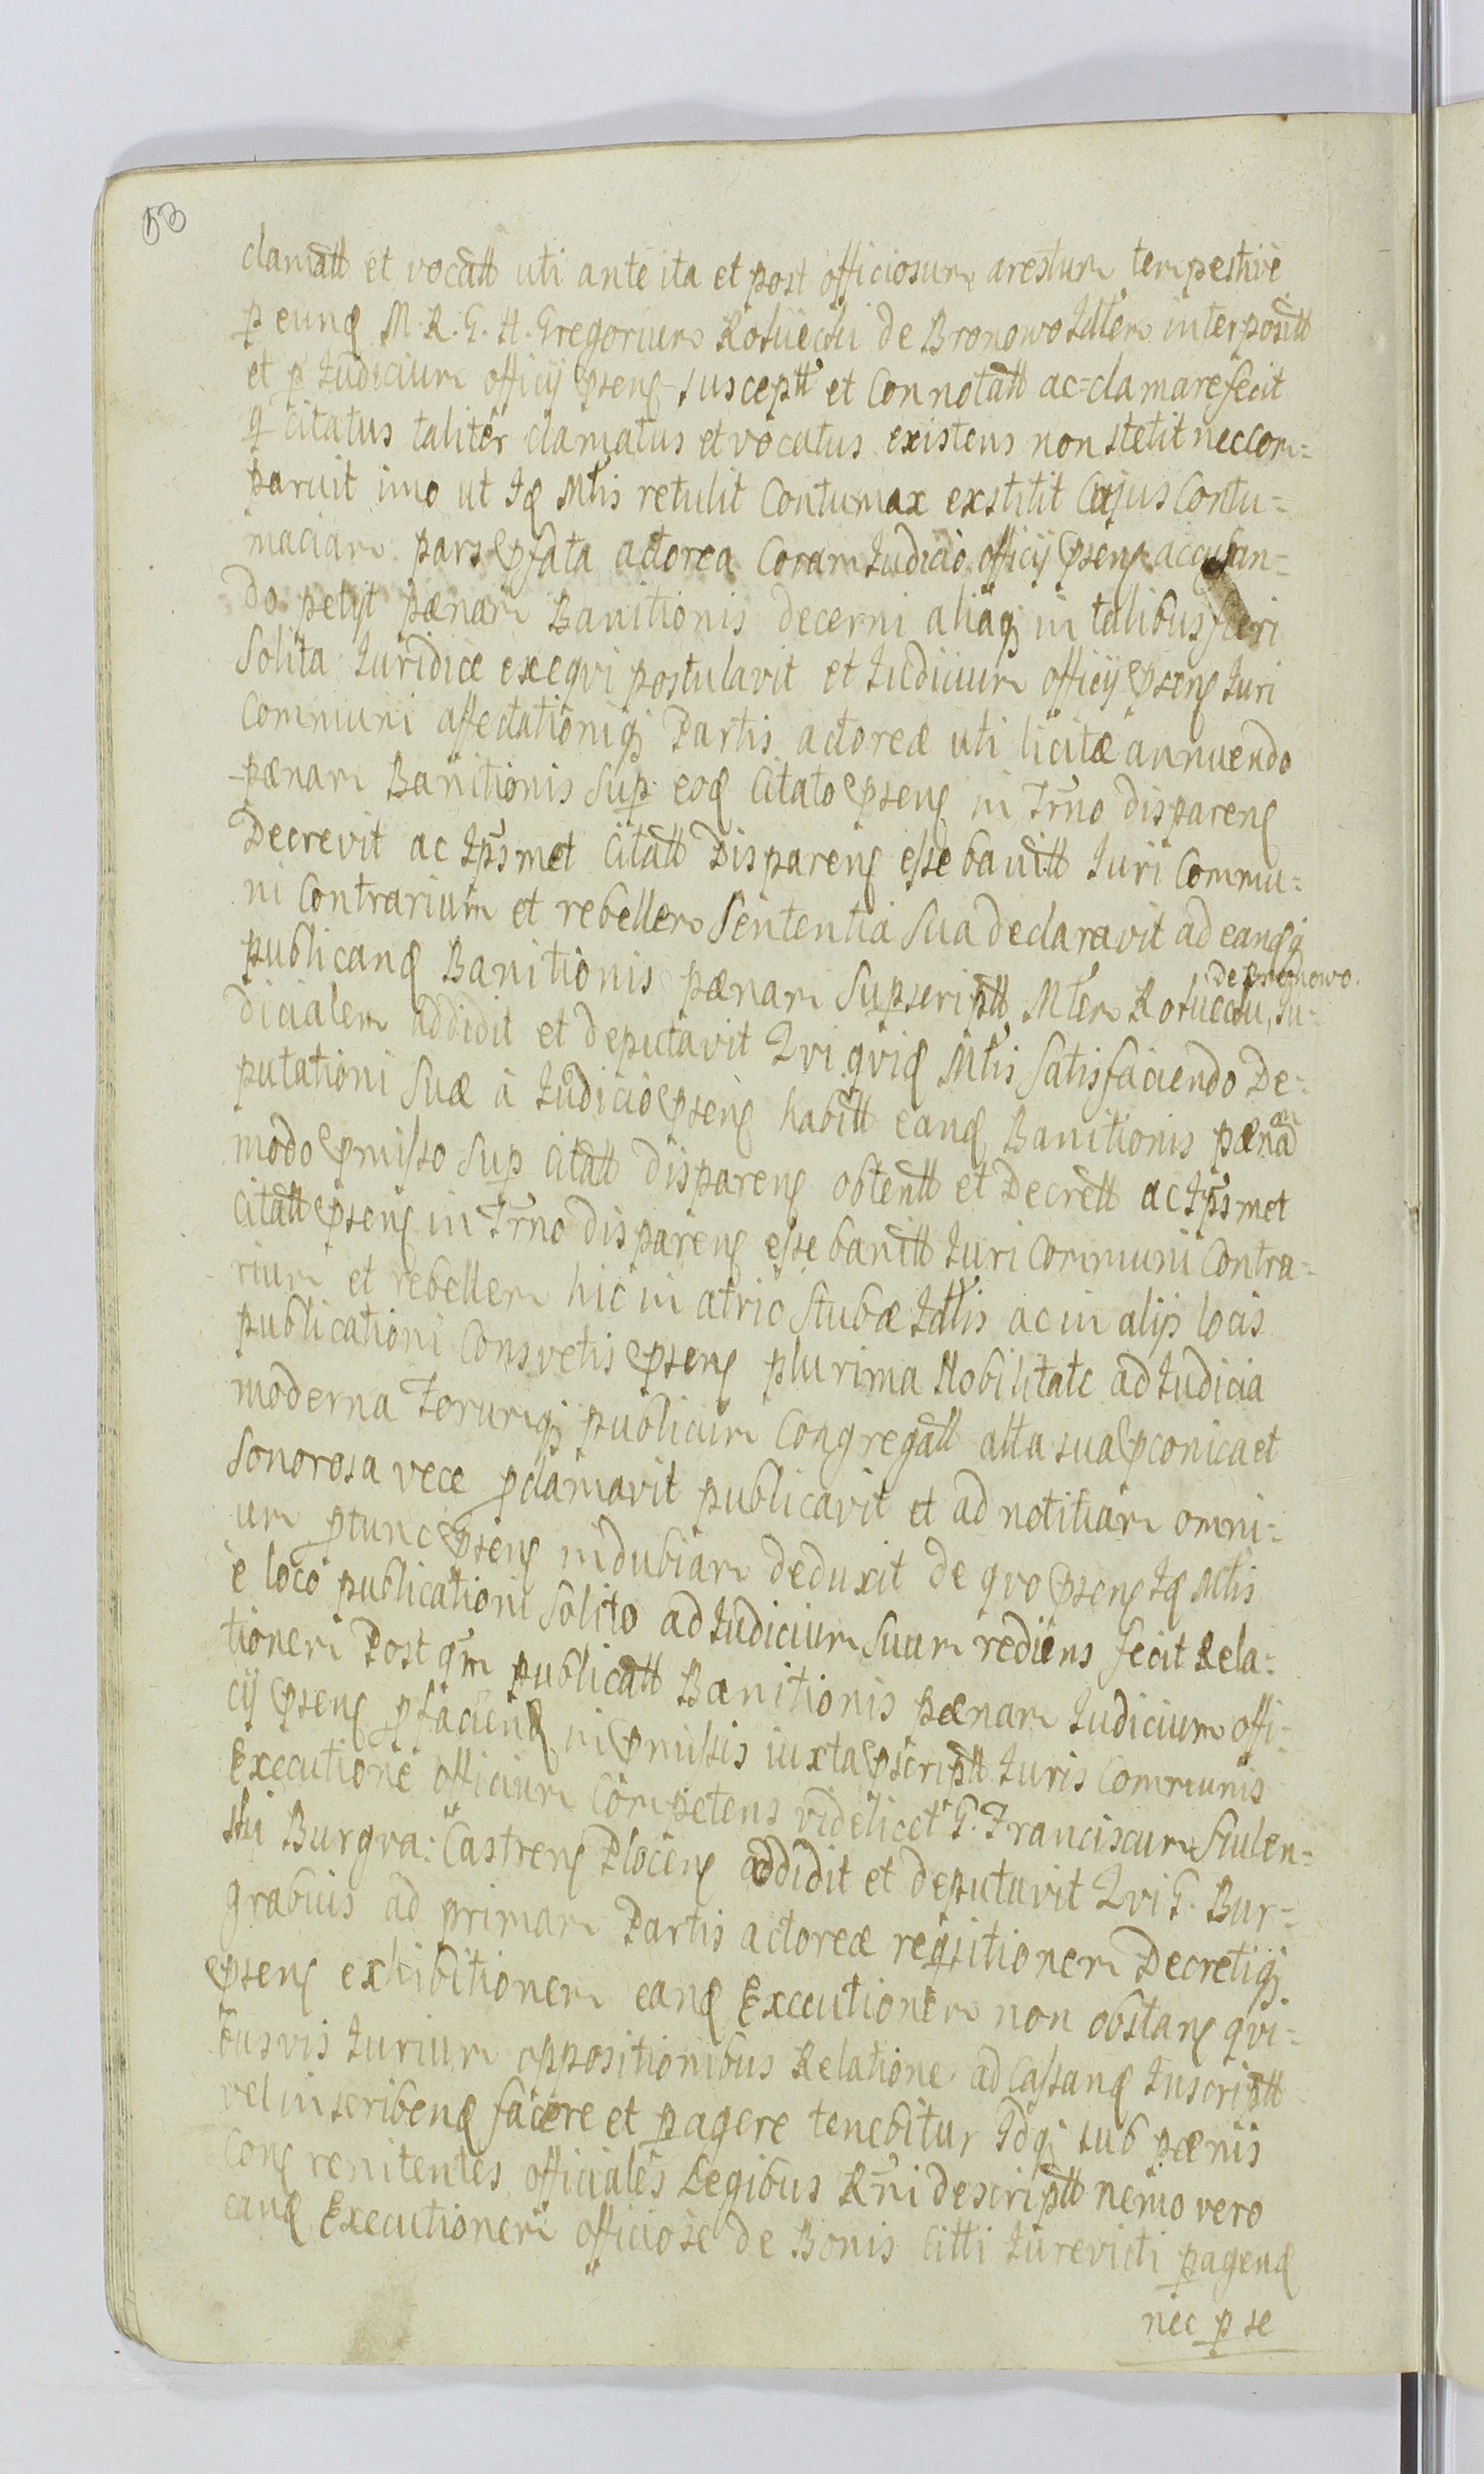 53
clamatt et vocatt uti ante ita et post officiosum arestum tempestive
p eunq M. R. G. H. Gregorium de Bronowo Idlem interposutt
et p Iudicium officij psenę susceptt et Connotatt ac=clamare fecit
q citatus taliter clamatus et vocatus existens non stetit nec Com=
paruit imo ut Iq Mtis retulit Contumax exstitit Cujus Contu=
maciam pars pfata actorea Coram Iudicio officij psenę accusan=
do petijt pænam Banitionis decerni aliaq in talibus fieri
Solita Iuridice exeqvi postulavit et Iudicium officij psenę Iuri
Communi affectationiq Partis actoreæ uti licitæ annuendo
pænam Banitionis Sup eoq Citato psenę in Trno disparenę
Decrevit ac Ipsmet Citatt Disparenę esse banitt Iuri Commu=
ni Contrarium et rebellem Sententia Sua declaravit ad eanqq
publicanq Banitionis pænam Supscriptt Mtem de Bronowo Iu=
dicialem addidit et deputavit Qvi qviq Mtis Satisfaciendo De=
putationi Suæ à Iudicio psenę habitt eanq Banitionis pænam
modo pmisso Sup Citatt disparenę obtentt et Decrett ac Ipsmet
Citatt psenę in Trno disparenę esse banitt Iuri Communi Contra=
rium et rebellem hic in atrio Stubæ Idlis ac in alijs locis
publicationi Consvetis psenę plurima Nobilitate ad Iudicia
moderna Forumq publicum Congregatt alta sua pconica et
Sonorosa voce pclamavit publicavit et ad notitiam omni=
um ptunc psenę indubiam deduxit de qvo psenę Iq Mtis
è loco publicationi Solito ad Iudicium Suum rediens fecit Rela=
tionem Post qm publicatt Banitionis pænam Iudicium offi=
cij psenę pfacienq in pmissis iuxta pscriptt Iuris Communis
Executione officium Competens videlicet G. Franciscum Sulen=
ski Burgra: Castrenę Plocenę addidit et deputavit Qvi G. Bur=
grabuis ad primam Partis actoreæ reqsitionem Decretiq
psenę exhibitionem eanq Executionem non obstanę qvi=
busvis Iurium oppositionibus Relatione ad Cassanq Inscriptt
vel inscribenq facere et pagere tenebitur Idq sub pænis
Conę renitentes officiales Legibus Rni descriptt nemo vero
eanq Executionem officiose de Bonis Citti Iurevicti pagenq
nec p se